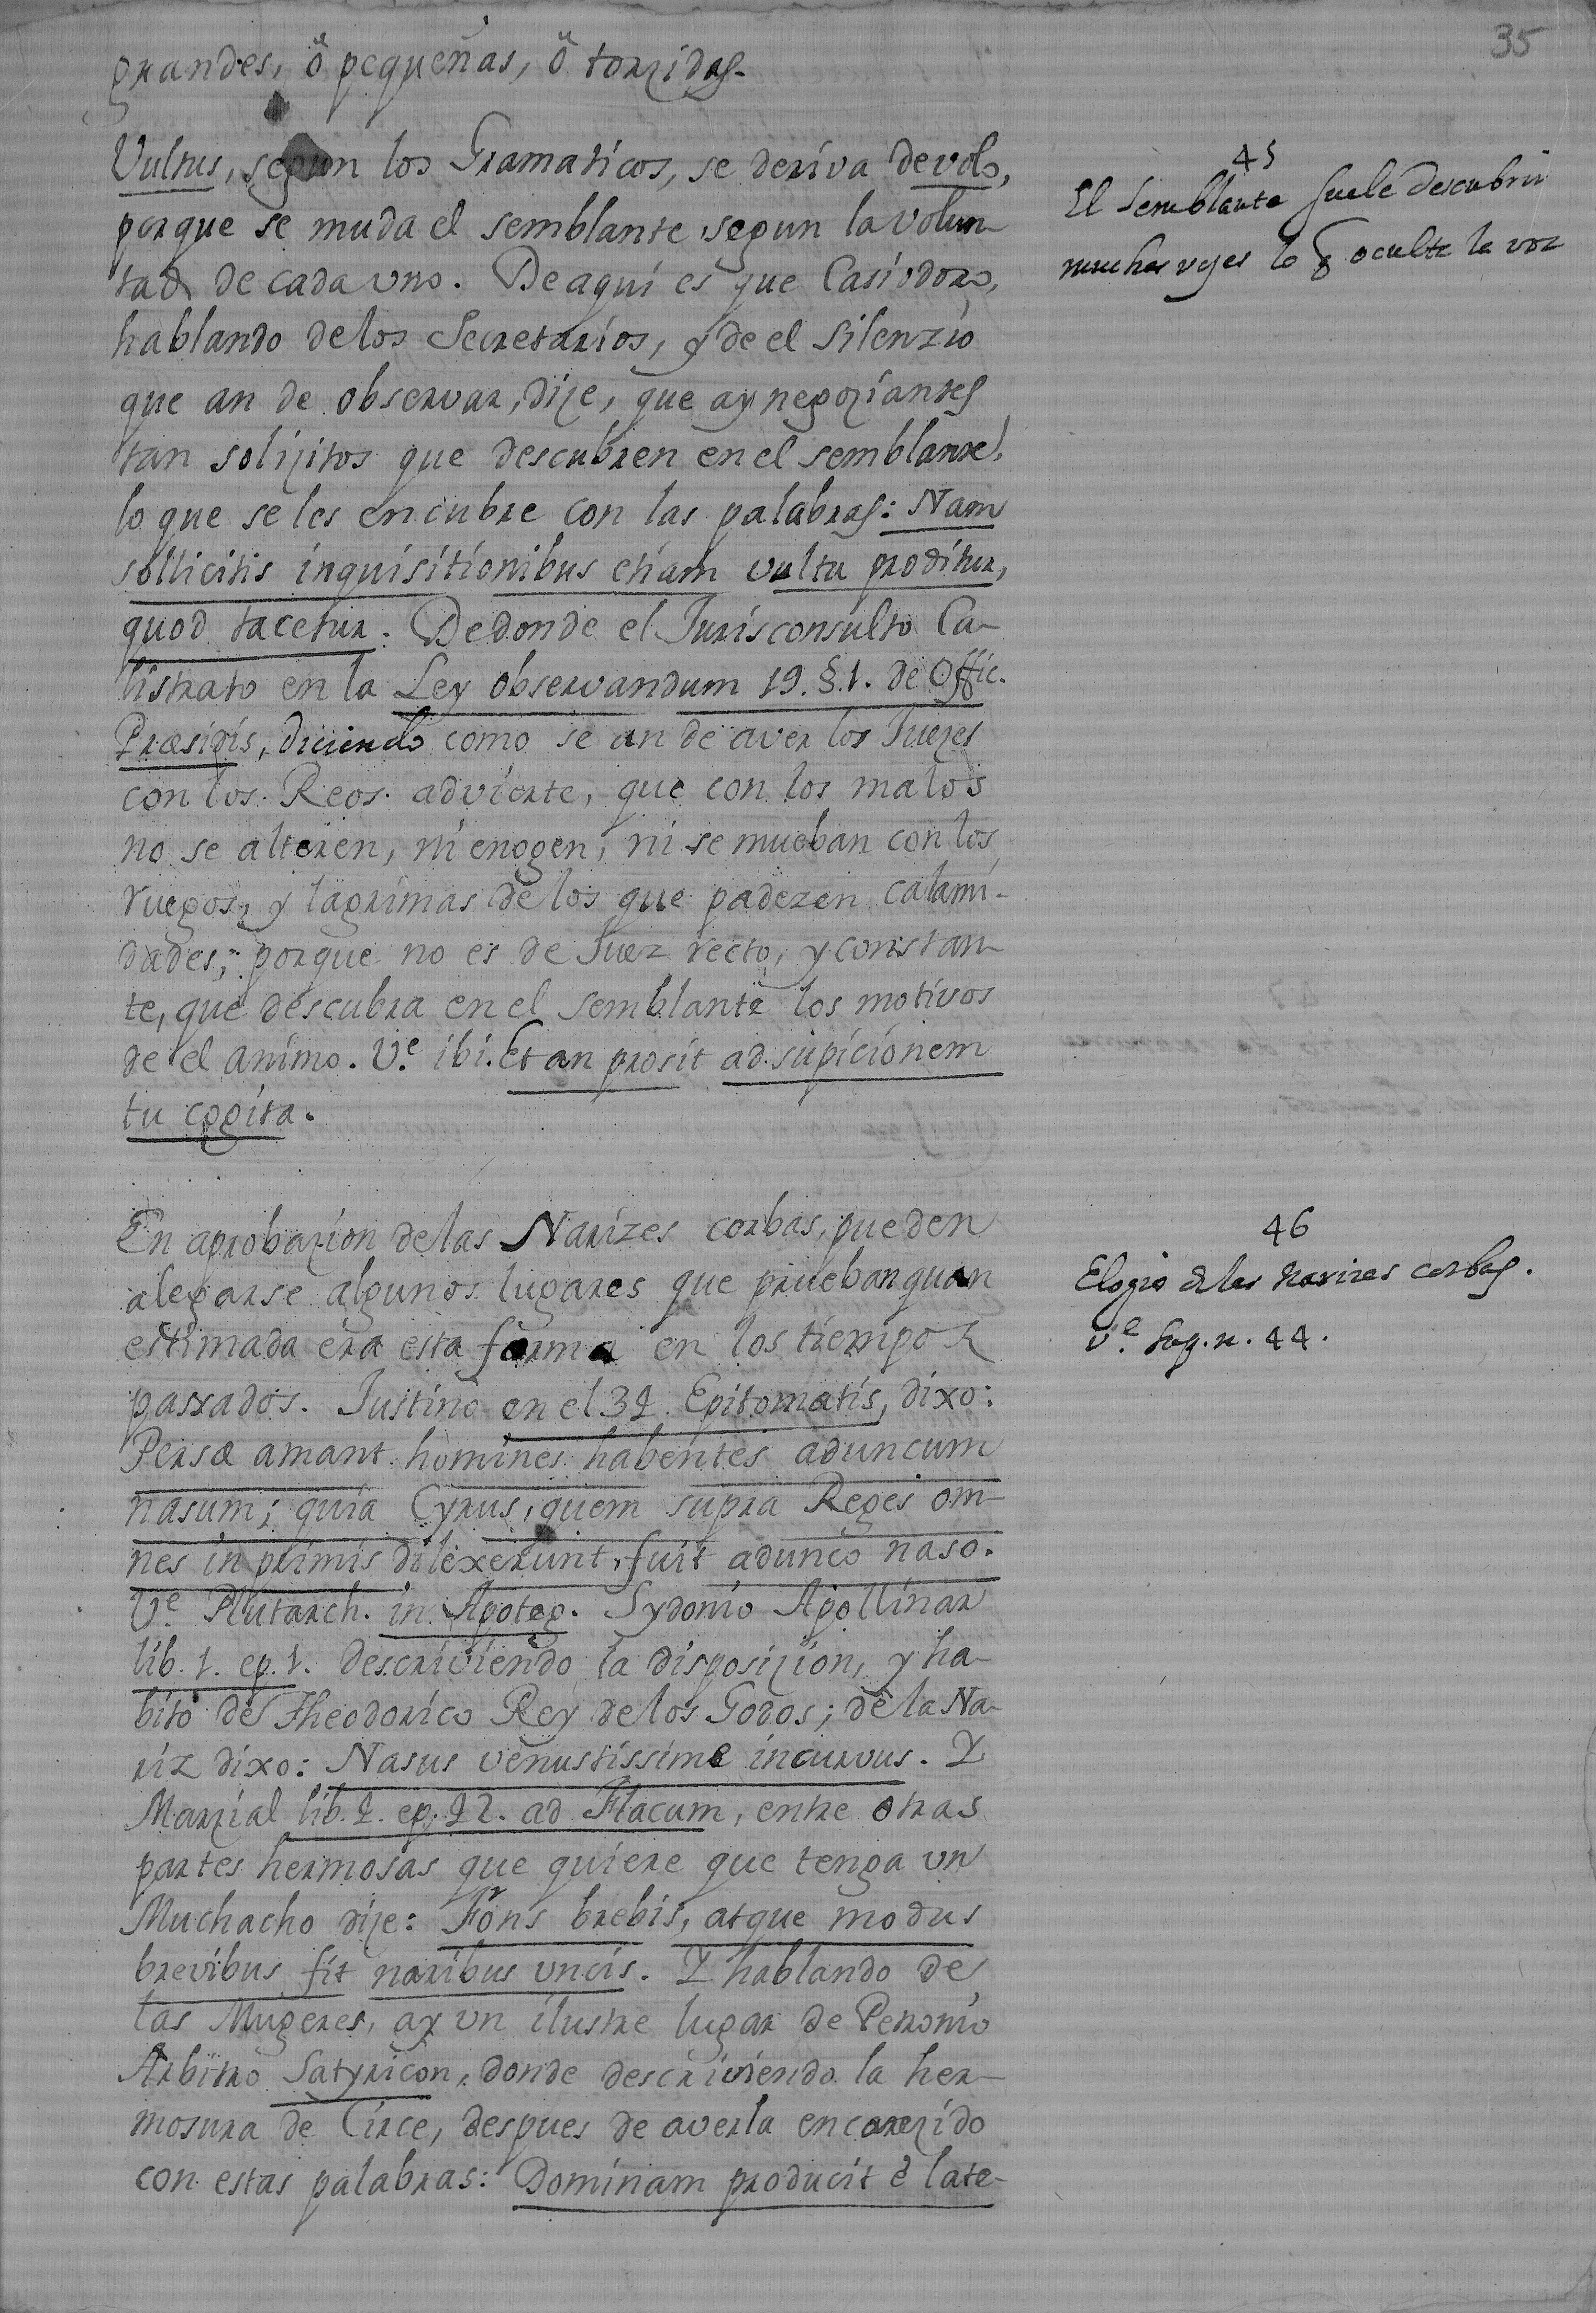 35
grandes, ô pequeñas, ô torzidas.
Vultus, segun los Gramaticos, se deriva de volo,
porque se muda el semblante segun la volun-
tad de cada uno. De aqui es que Casiodoro,
hablando de los Secretarios, y de el silenzio
que an de observar, dize, que ay negoziantes
tan solizitos que descubren en el semblante,
lo que se les encubre con las palabras: Nam
sollicitis inquisitionibus etiam vultu proditur,
quod tacetur. De donde el Jurisconsulto Ca-
listrato en la Ley observandum 19. §. 1. de Offic.
Præsidis, diciendo como se an de aver los Juezes
con los Reos. advierte, que con los malos
no se alteren, ni enogen, ni se mueban con los
ruegos, y lagrimas de los que padezen calami-
dades; porque no es de Juez recto, y constan-
te, que descubra en el semblante los motivos
de el animo. Vᵉ. ibi. Et an prosit ad supicionem
tu cogita.
45
El Semblante suele descubrir
muchas vezes lo q oculta la voz
En aprobazion de las Narizes corbas, pueden
alegarse algunos lugares que prueban quan
estimada era esta forma en los tiempos
passados. Justino en el 32 Epitomatis, dixo:
Persæ amant homines habentes aduncum
nasum; quia Cyrus, quem supra Reges om-
nes in primis dilexerunt, fuit adunco naso.
Vᵉ. Plutarch. in Apoteg. Sydonio Apollinar
lib. 1. ep. 1. descriviendo la disposizion, y ha-
bito de Theodorico Rey de los Godos; de la Na-
riz dixo: Nasus venustissime incurvus. Y
Marzial lib. 2. ep. 22. ad Flacum, entre otras
partes hermosas que quiere que tenga un
Muchacho dize: Frons brebis, atque modus
brevibus fit naribus uncis. Y hablando de
las Mugeres, ay un ilustre lugar de Petronio
Arbitro Satyricon, donde descriviendo la her-
mosura de Circe, despues de averla encarezido
con estas palabras: Dominam producit è late-
46
Elogio de las narizes corbas.
vᵉ. sup. n. 44.